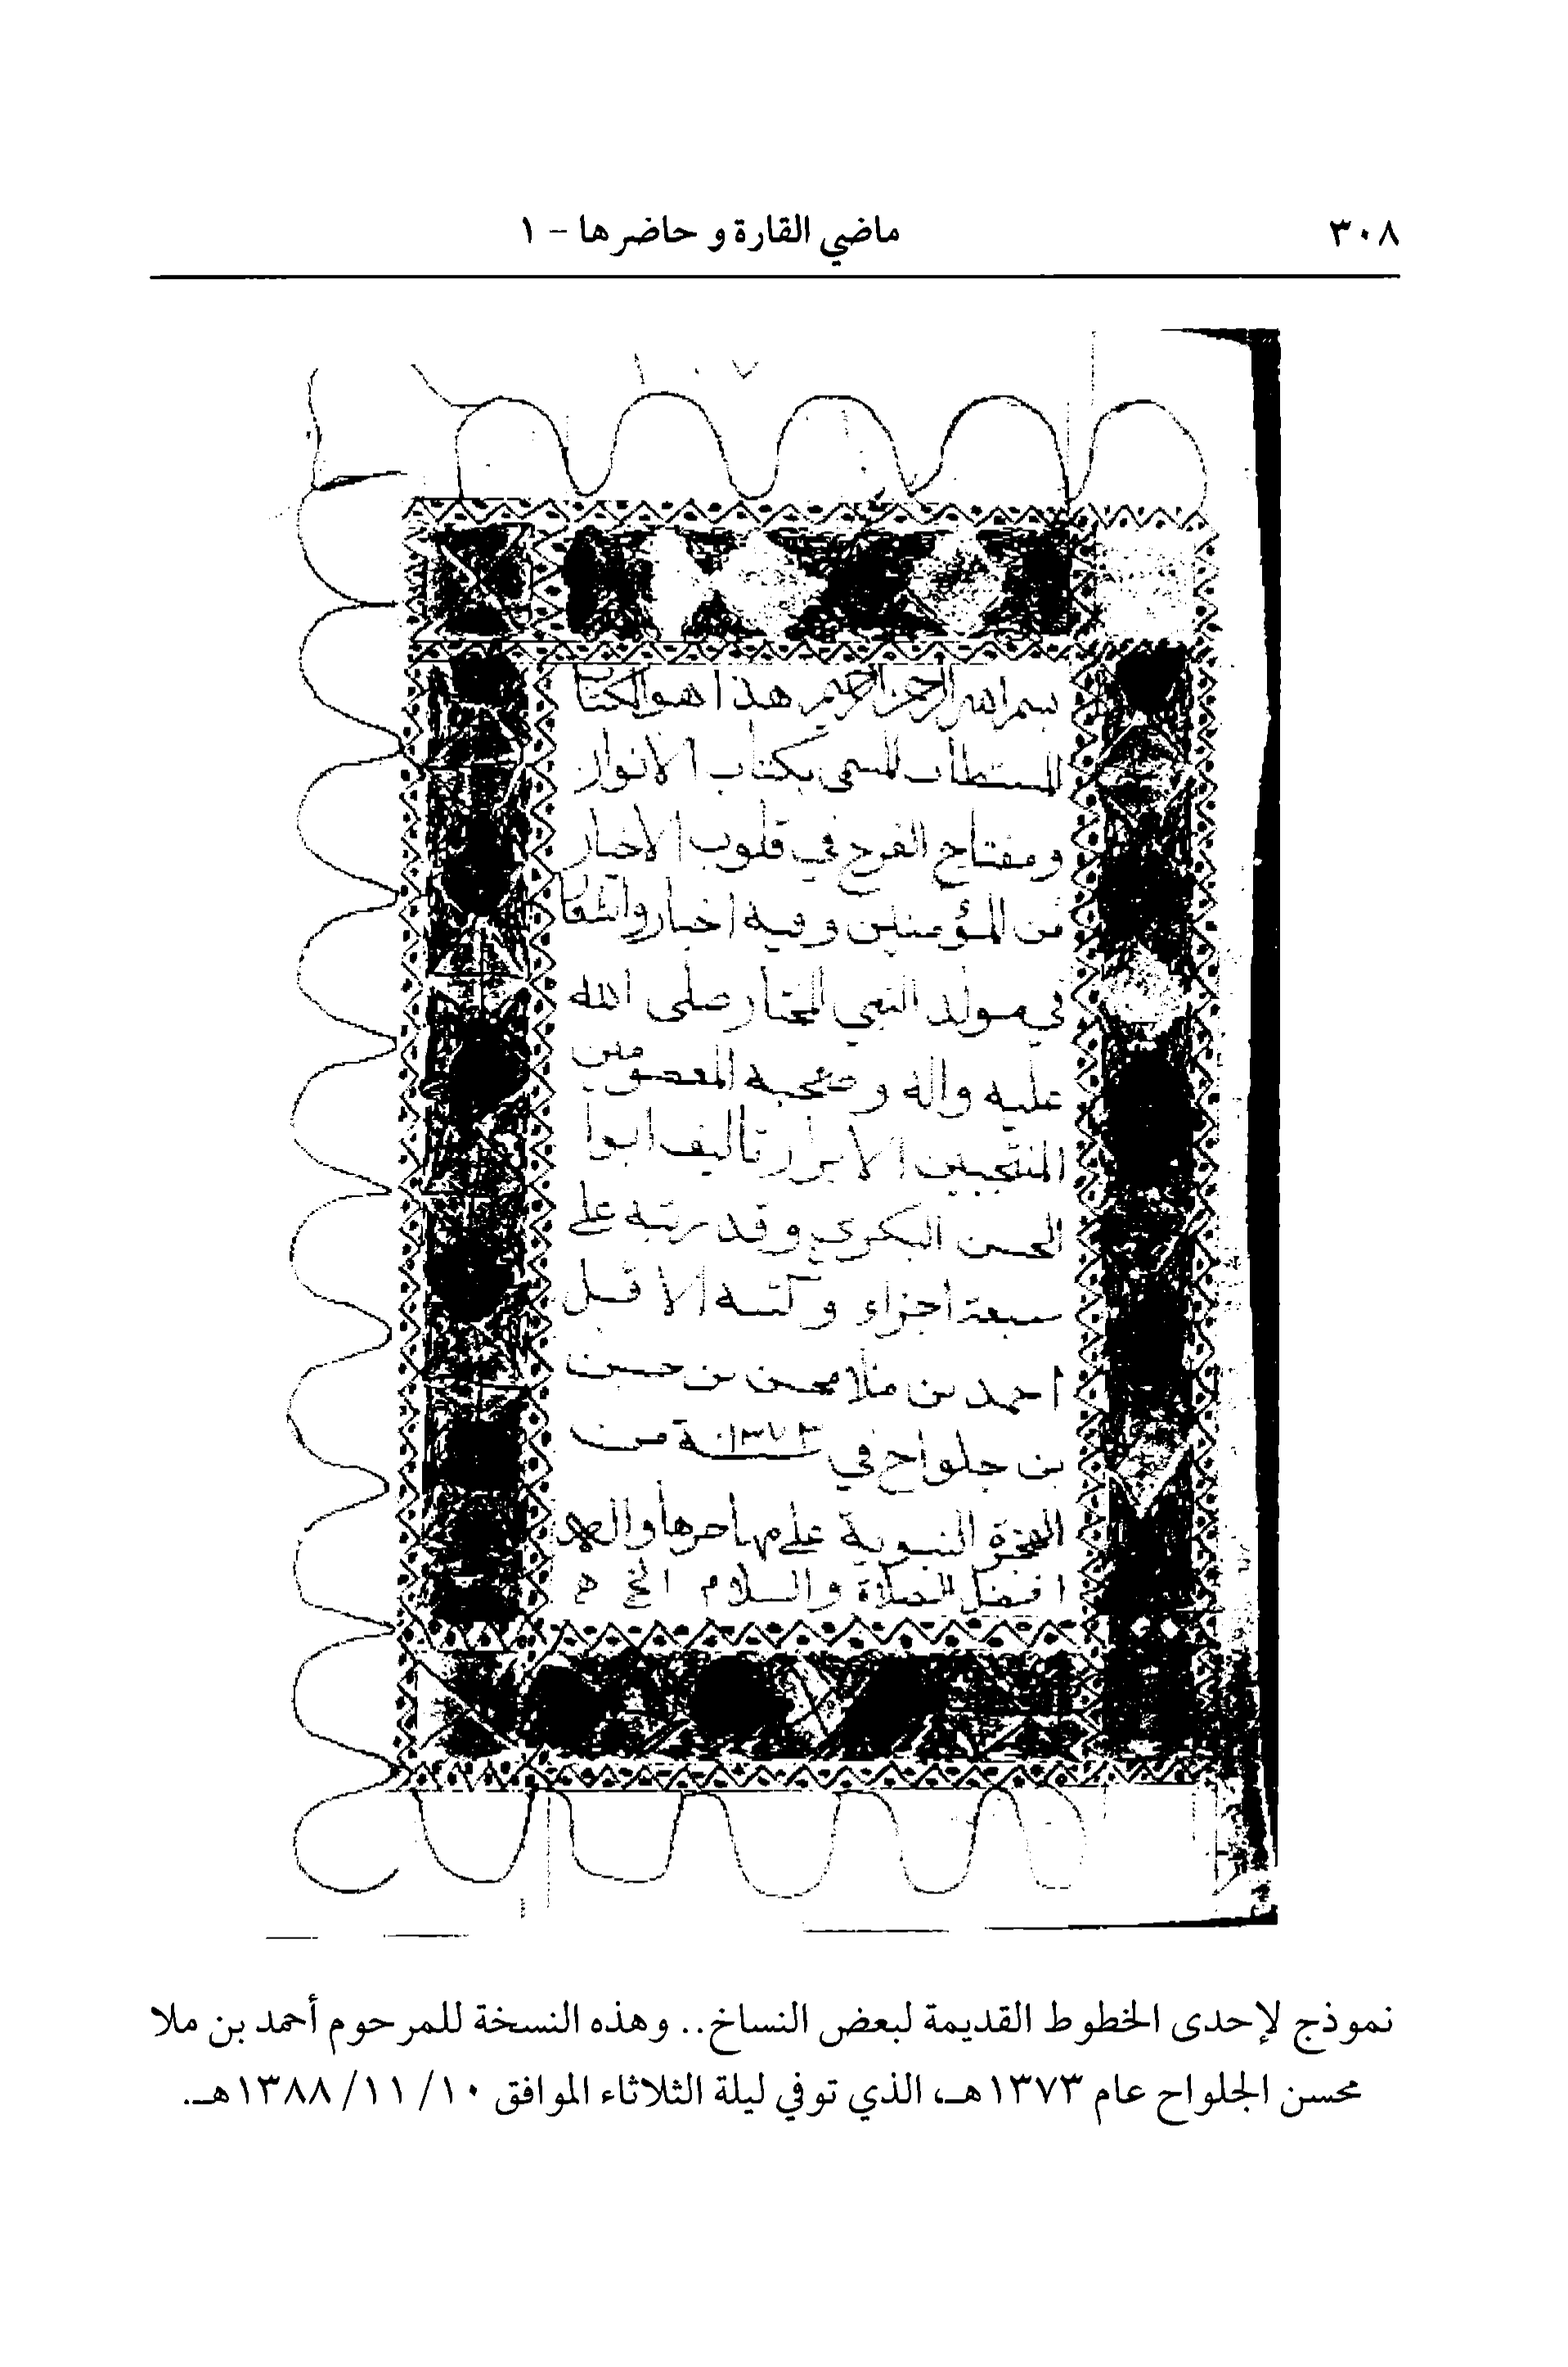 ٣٠٨
ماضي القارة و حاضرها - ١
بسم الله الرحمن الرحيم هذا هو الكتاب
المستطاب المسمى بكتاب الانوار
ومفتاح الفرح في قلوب الاخيار
من المؤمنين وفيه اخبار واشعار
في مولد النبي المختار صلى الله
عليه واله وصحبه المعصومين
المنتجبين الابرار تاليف ابوا
الحسن البكري وقد رتبه على
سبعة اجزاء وكتبه الاقل
احمد بن ملا محسن بن حسين
بن جلواح في ١٣٧٣ سنة من
الهجرة النبوية على مهاجرها واله
افضل الصلاة والسلام الخ م
نموذج لإحدى الخطوط القديمة لبعض النساخ.. وهذه النسخة للمرحوم أحمد بن ملا
محسن الجلواح عام ١٣٧٣هـ، الذي توفي ليلة الثلاثاء الموافق ١٠/ ١١/ ١٣٨٨هـ.